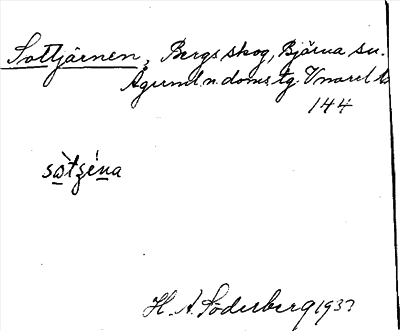 Sottjärnen, Bergs skog, Bjärna sn.
Ågerml. n. doms. tg. V norrl. k
144
sòtʒéna
H. A. Söderberg 193?